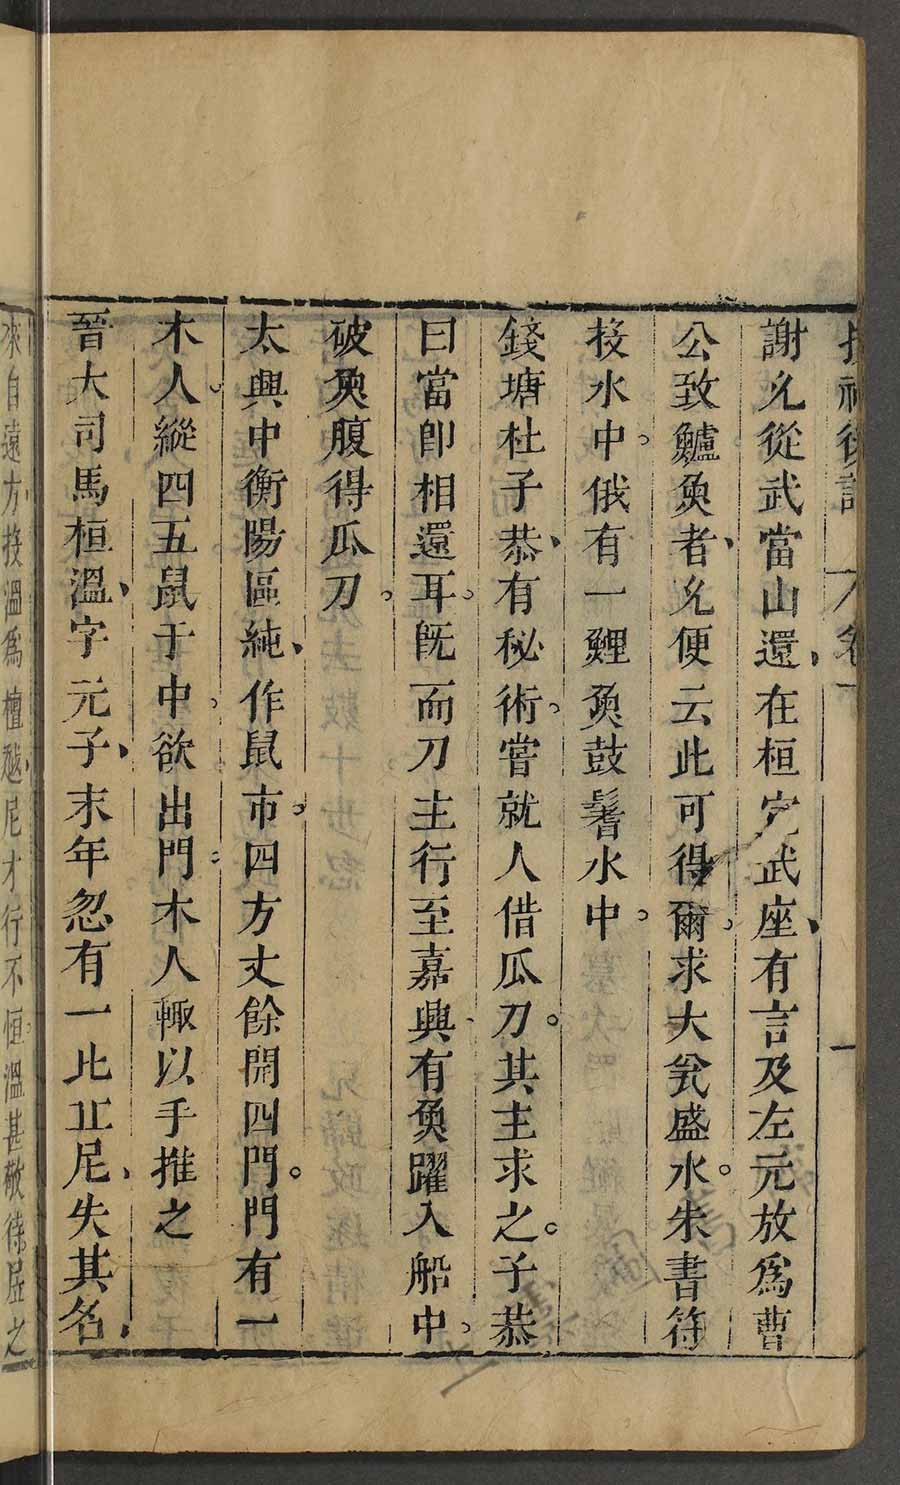 搜神後記 卷
謝允從武當山還、在桓宣武座、有言及左元放爲曹
公致鱸魚者、允便云此可得爾。求大瓮盛水。朱書符
投水中。俄有一鯉魚鼓鬐水中。
錢塘杜子恭、有秘術。嘗就人借瓜刀。其主求之。子恭
曰當卽相還耳。旣而刀主行至嘉興、有魚躍入船中。
破魚腹得瓜刀。
太興中衡陽區純、作鼠市。四方丈餘開四門。門有一
木人、縱四五鼠于中。欲出門、木人輙以手推之
晉大司馬桓溫、字元子、末年忽有一比丘尼、失其名、
來自遠方投溫爲檀越尼才行不恒溫甚敬待居之